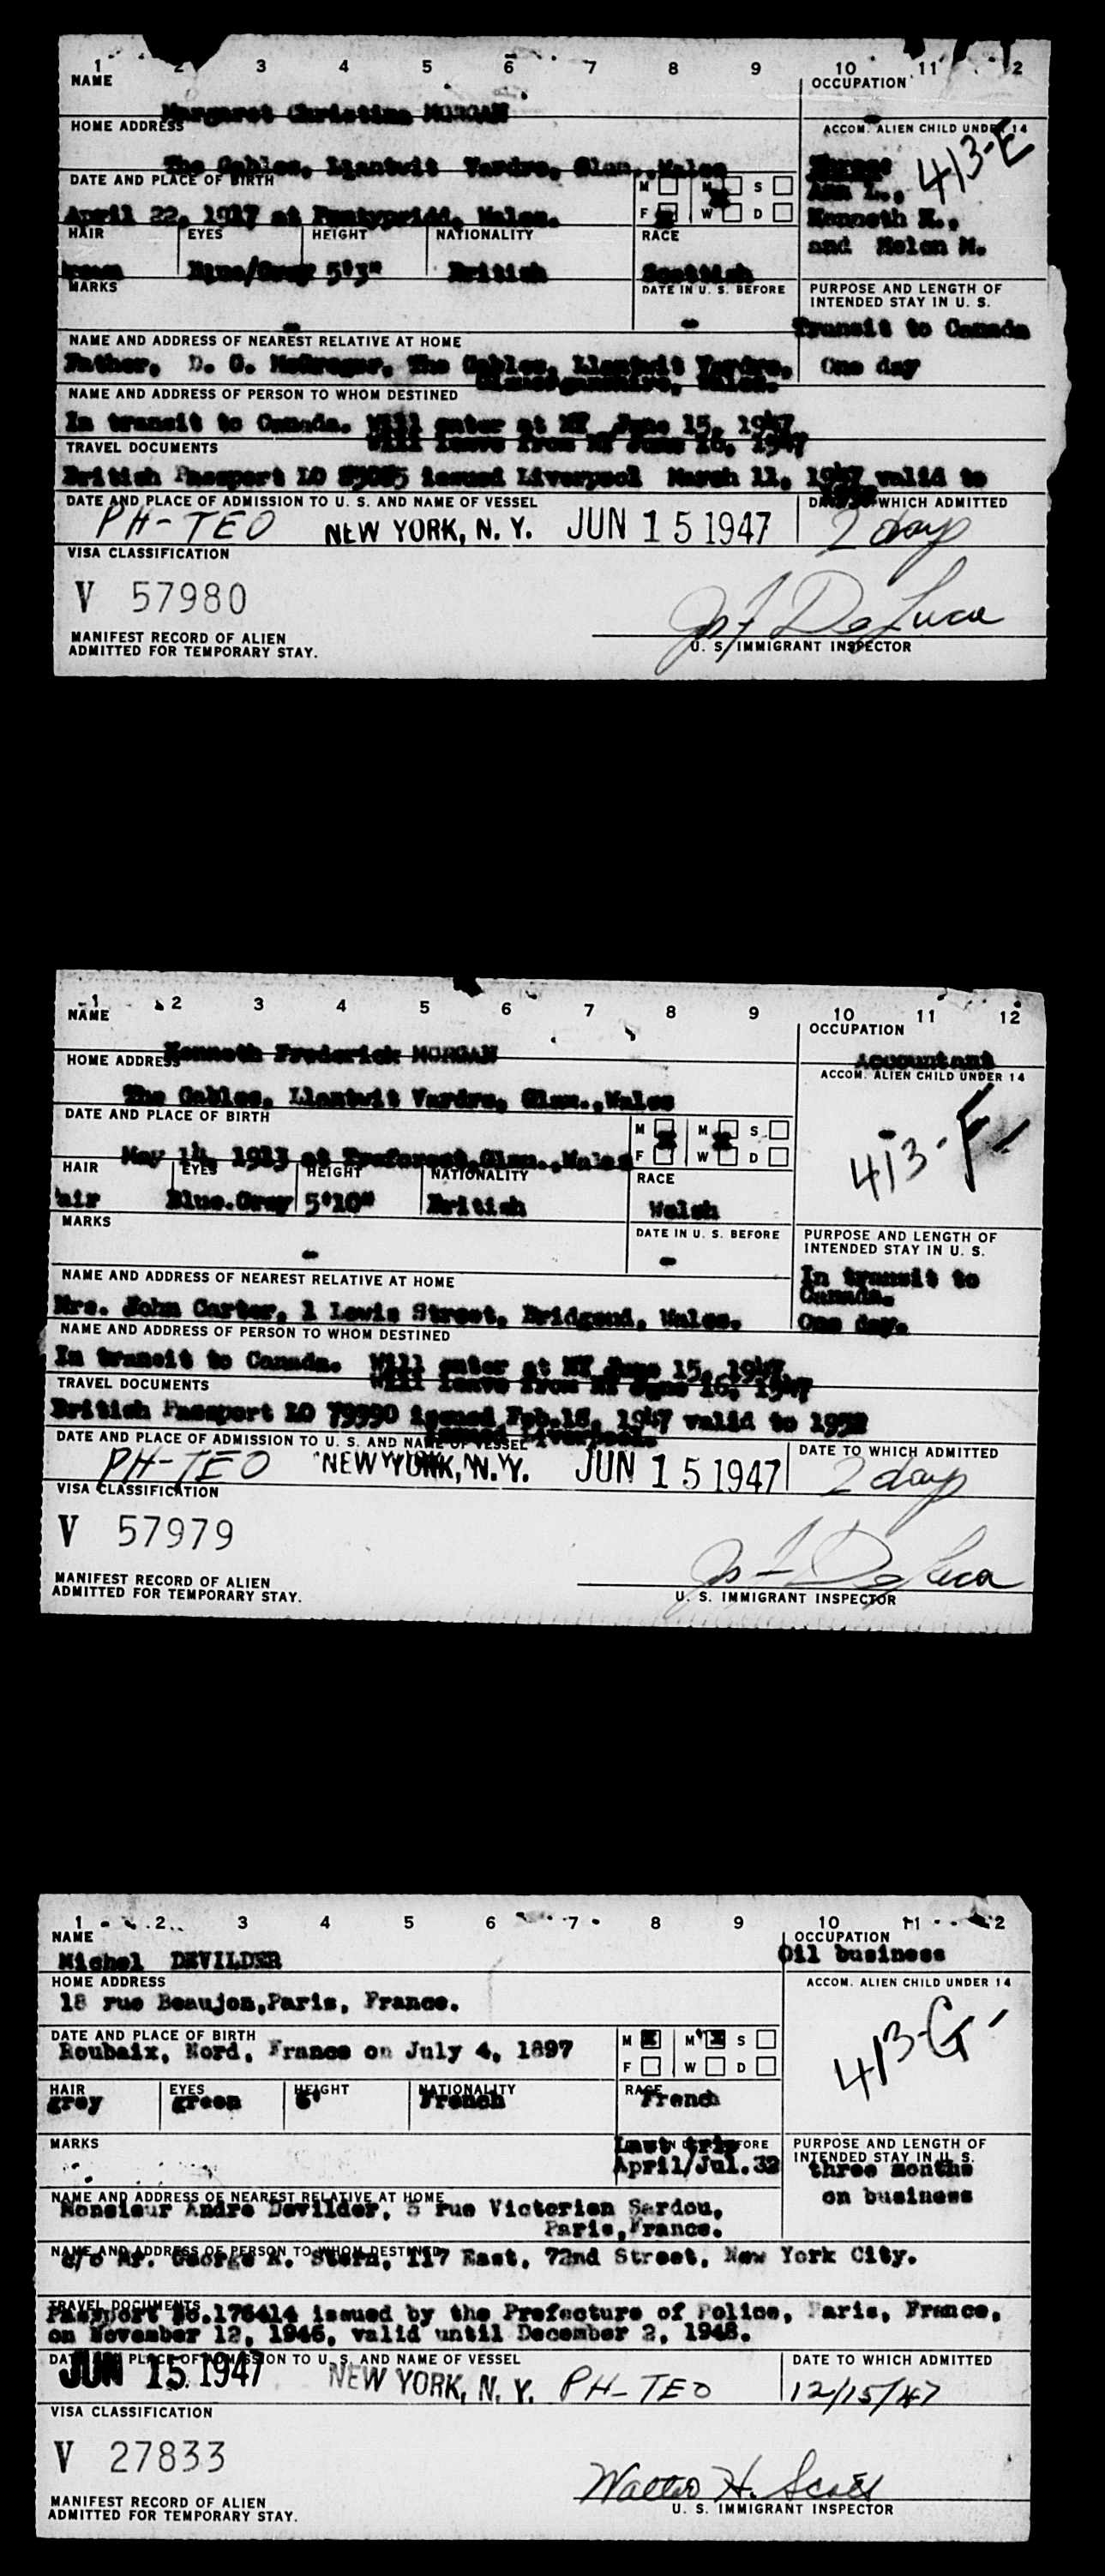 1 2 3 4 5 6 7 8 9 10 11 12
NAME
OCCUPATION
Margaret Christine MORGAN
HOME ADDRESS
ACCOM. ALIEN CHILD UNDER 14
The Gables, Llantwit Vardre, Glam.,Wales
413-E
DATE AND PLACE OF BIRTH
M M S
Ann L.,
April 22, 1917 at Pontypridd, Wales.
F W D
Kenneth K.,
and Helen M.
HAIR EYES HEIGHT NATIONALITY RACE
Blue/Gray 5'3" British Scottish
MARKS
DATE IN U. S. BEFORE
PURPOSE AND LENGTH OF
INTENDED STAY IN U. S.
- -
Transit to Canada
One day
NAME AND ADDRESS OF NEAREST RELATIVE AT HOME
Father, D. G. McGregor, The Gables, Llantwit Vardre,
Glamorganshire, Wales.
NAME AND ADDRESS OF PERSON TO WHOM DESTINED
In transit to Canada. Will enter at NY June 15, 1947
Will leave from NY June 16, 1947
TRAVEL DOCUMENTS
British Passport LO issued Liverpool March 11, 1947 valid to
DATE AND PLACE OF ADMISSION TO U. S. AND NAME OF VESSEL
DATE TO WHICH ADMITTED
PH-TEO NEW YORK, N. Y. JUN 15 1947 2 days
VISA CLASSIFICATION
V 57980
Jos F DeLuca
MANIFEST RECORD OF ALIEN
ADMITTED FOR TEMPORARY STAY.
U. S. IMMIGRANT INSPECTOR
1 2 3 4 5 6 7 8 9 10 11 12
NAME
OCCUPATION
Kenneth Frederick MORGAN
Accountant
HOME ADDRESS
ACCOM. ALIEN CHILD UNDER 14
The Gables, Llantwit Vardre, Glam.,Wales
DATE AND PLACE OF BIRTH
M M S
F W D
-
413-F
May 14, 1913 at Treforest,Glam.,Wales
HAIR EYES HEIGHT NATIONALITY RACE
air Blue.Gray 5'10" British Welsh
MARKS
DATE IN U. S. BEFORE
PURPOSE AND LENGTH OF
INTENDED STAY IN U. S.
- -
In transit to
Canada.
One day.
NAME AND ADDRESS OF NEAREST RELATIVE AT HOME
Mrs. John Carter, 1 Lewis Street, Bridgend, Wales.
NAME AND ADDRESS OF PERSON TO WHOM DESTINED
In transit to Canada. Will enter at NY June 15, 1947
Will leave from NY June 16, 1947
TRAVEL DOCUMENTS
British Passport LO 79990 issued Feb.18, 1947 valid to 1952
issued Liverpool.
DATE AND PLACE OF ADMISSION TO U. S. AND NAME OF VESSEL
DATE TO WHICH ADMITTED
PH-TEO NEW YORK, N. Y. JUN 15 1947 2 days
VISA CLASSIFICATION
V 57979
Jos F DeLuca
MANIFEST RECORD OF ALIEN
ADMITTED FOR TEMPORARY STAY.
U. S. IMMIGRANT INSPECTOR
1 2 3 4 5 6 7 8 9 10 11 12
NAME
OCCUPATION
Michel DEVILDER
Oil business
HOME ADDRESS
ACCOM. ALIEN CHILD UNDER 14
18 rue Beaujon,Paris, France.
413-G
DATE AND PLACE OF BIRTH
Roubaix, Nord, France on July 4, 1897
M M S
F W D
HAIR EYES HEIGHT NATIONALITY RACE
grey green 6' French French
MARKS
Last trip
April/Jul.32
PURPOSE AND LENGTH OF
INTENDED STAY IN U. S.
three months
on business
NAME AND ADDRESS OF NEAREST RELATIVE AT HOME
Monsieur Andre Devilder, 5 rue Victorien Sardou,
Paris,France.
NAME AND ADDRESS OF PERSON TO WHOM DESTINED
c/o Mr. George R. Stern, 117 East, 72nd Street, New York City.
TRAVEL DOCUMENTS
Passport No.176414 issued by the Prefecture of Police, Paris, France,
on November 12, 1946, valid until December 2, 1948.
DATE AND PLACE OF ADMISSION TO U. S. AND NAME OF VESSEL
DATE TO WHICH ADMITTED
JUN 15 1947 NEW YORK, N. Y. PH-TEO 12/15/47
VISA CLASSIFICATION
V 27833
Walter H. Scott
MANIFEST RECORD OF ALIEN
ADMITTED FOR TEMPORARY STAY.
U. S. IMMIGRANT INSPECTOR